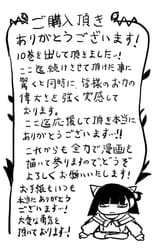 ご購入頂き
ありがとうございます!
10巻を出して頂きました…!
ここ迄続けさせて頂けた事に
驚くと同時に、皆様のお力の
偉大さを強く実感して
おります。
ここ迄応援して頂き本当に
ありがとうございます…!!
これからも全力で漫画も
描いて参りますので、どうぞ
よろしくお願いいたします!
お手紙もいつも
本当にありがとう
ございます…!
大変な勇気を
頂いております!